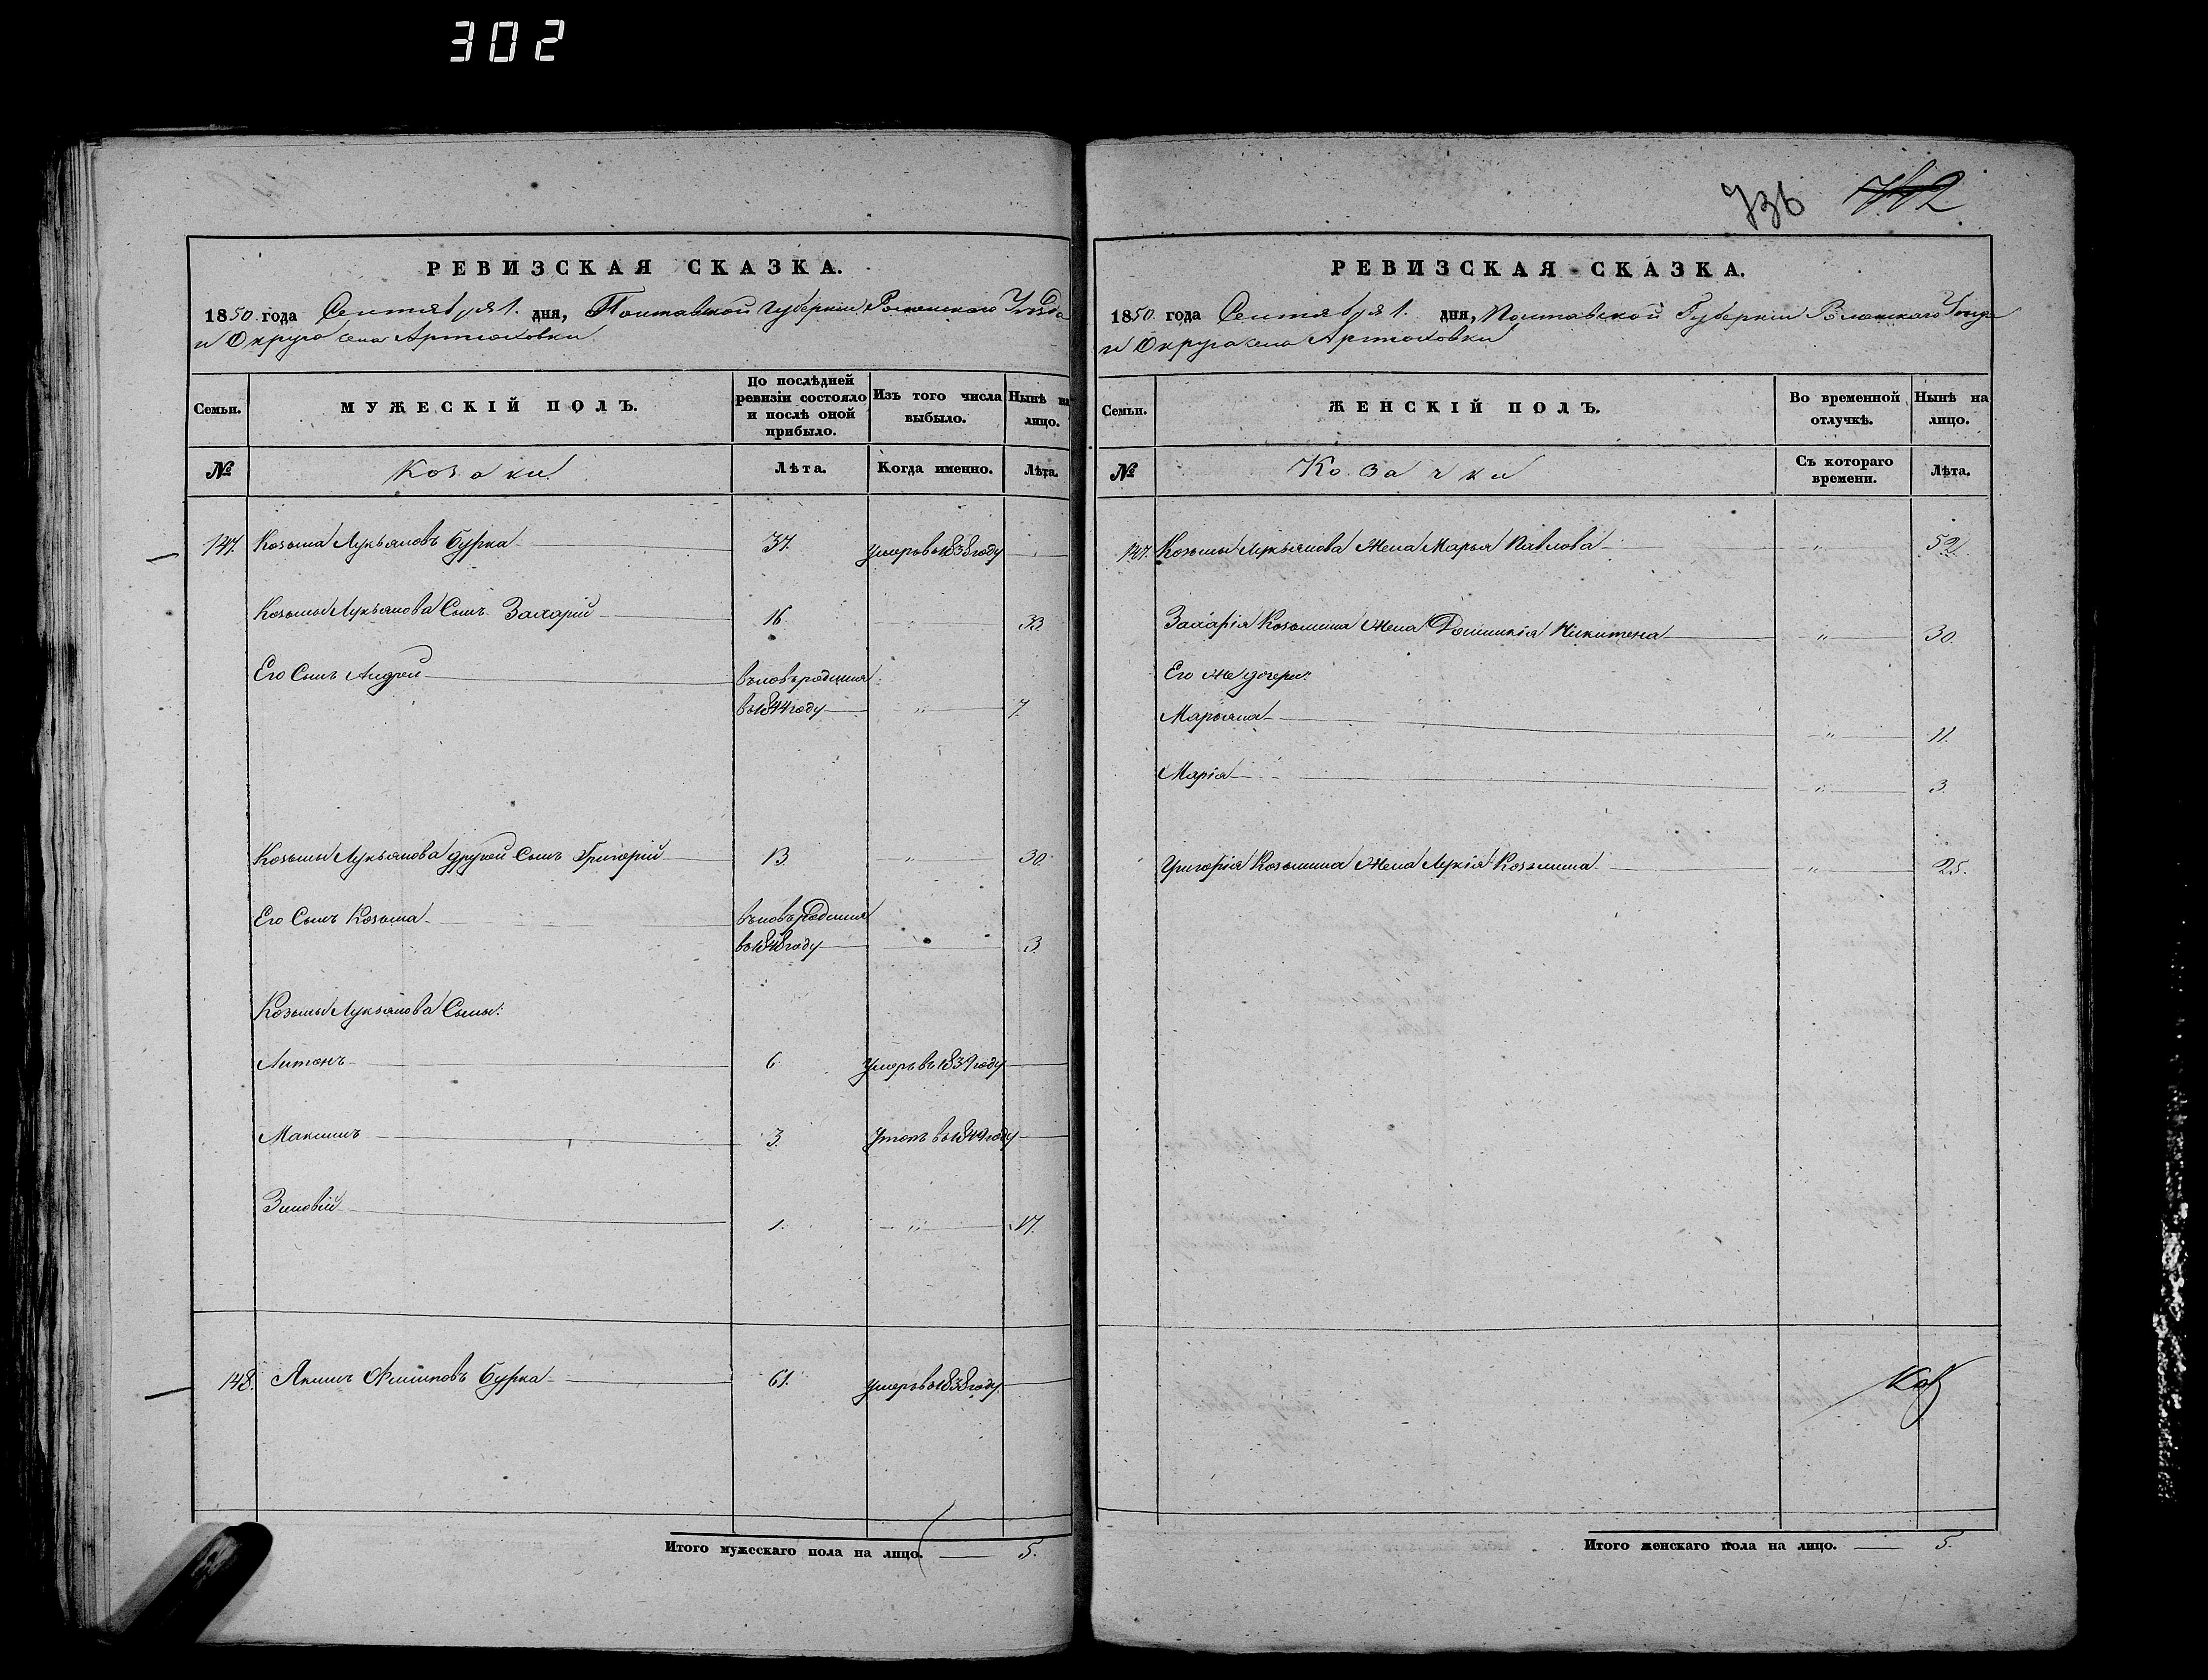 302
РЕВИЗСКАЯ СКАЗКА.
1850 года Сентября 1. дня, Полтавской Губернии Роменского Уезда
и Округа села Артюховки
Семьи.
МУЖЕСКІЙ ПОЛЪ.
По послѣдней ревизіи состояло и послѣ оной прибыло.
Изъ того числа выбыло.
Нынѣ на лицо.
№
Козаки
Лѣта.
Когда именно.
Лѣта.
147. Козьма Лукьяновъ Бурка 37. умеръ въ 1838 году
Козьмы Лукьянова Сынъ Захарій 16. 33.
Его Сынъ Андрей вновь родился
въ 1844 году " 7.
Козьмы Лукьянова другой Сынъ Григорій 13 " 30
Его Сынъ Козьма вновь родился
въ 1848 году 3
Козьмы Лукьянова Сыны:
Антонъ 6 Умеръ въ 1839 году
Максимъ 3. въ 1844 году
Зиновій 1. " 17.
148. Якимъ Бурка 61. умеръ въ 1838 году
Итого мужескаго пола на лицо. 5.
736 742
РЕВИЗСКАЯ СКАЗКА.
1850 года Сентября 1. дня, Полтавской Губернии Роменскаго
и Округа села Артюховки
Семьи.
ЖЕНСКІЙ ПОЛЪ.
Во временной отлучкѣ.
Нынѣ на лицо.
№
Козачки
Съ котораго времени.
Лѣта.
147. Козьмы Лукьянова Жена Марья Павлова " 52.
Захарія Козьмина Жена Домникія Никитена " 30.
Его же дочери:
Марьяна " 11.
Марія " 3.
Григорія Козьмина Жена Лукія Козьмина " 25.
Итого женскаго пола на лицо. 5.